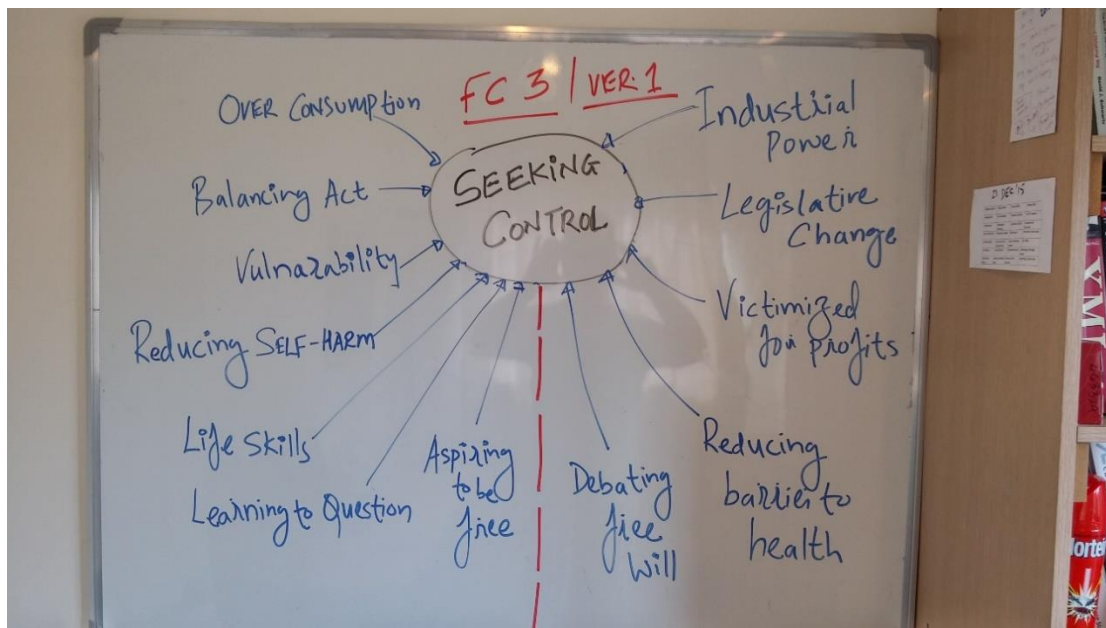 FC 3 / VER. 1
SEEKING
CONTROL
OVER CONSUMPTION
Balancing Act
Vulnarability
Reducing SELF-HARM
Life Skills
Learning to Question
Aspiring
to be
free
Debating
free
Will
Reducing
barrier to
health
Victimized
for profits
Legislative
Change
Industrial
Power
21 DEC'15
XMI
Mortei